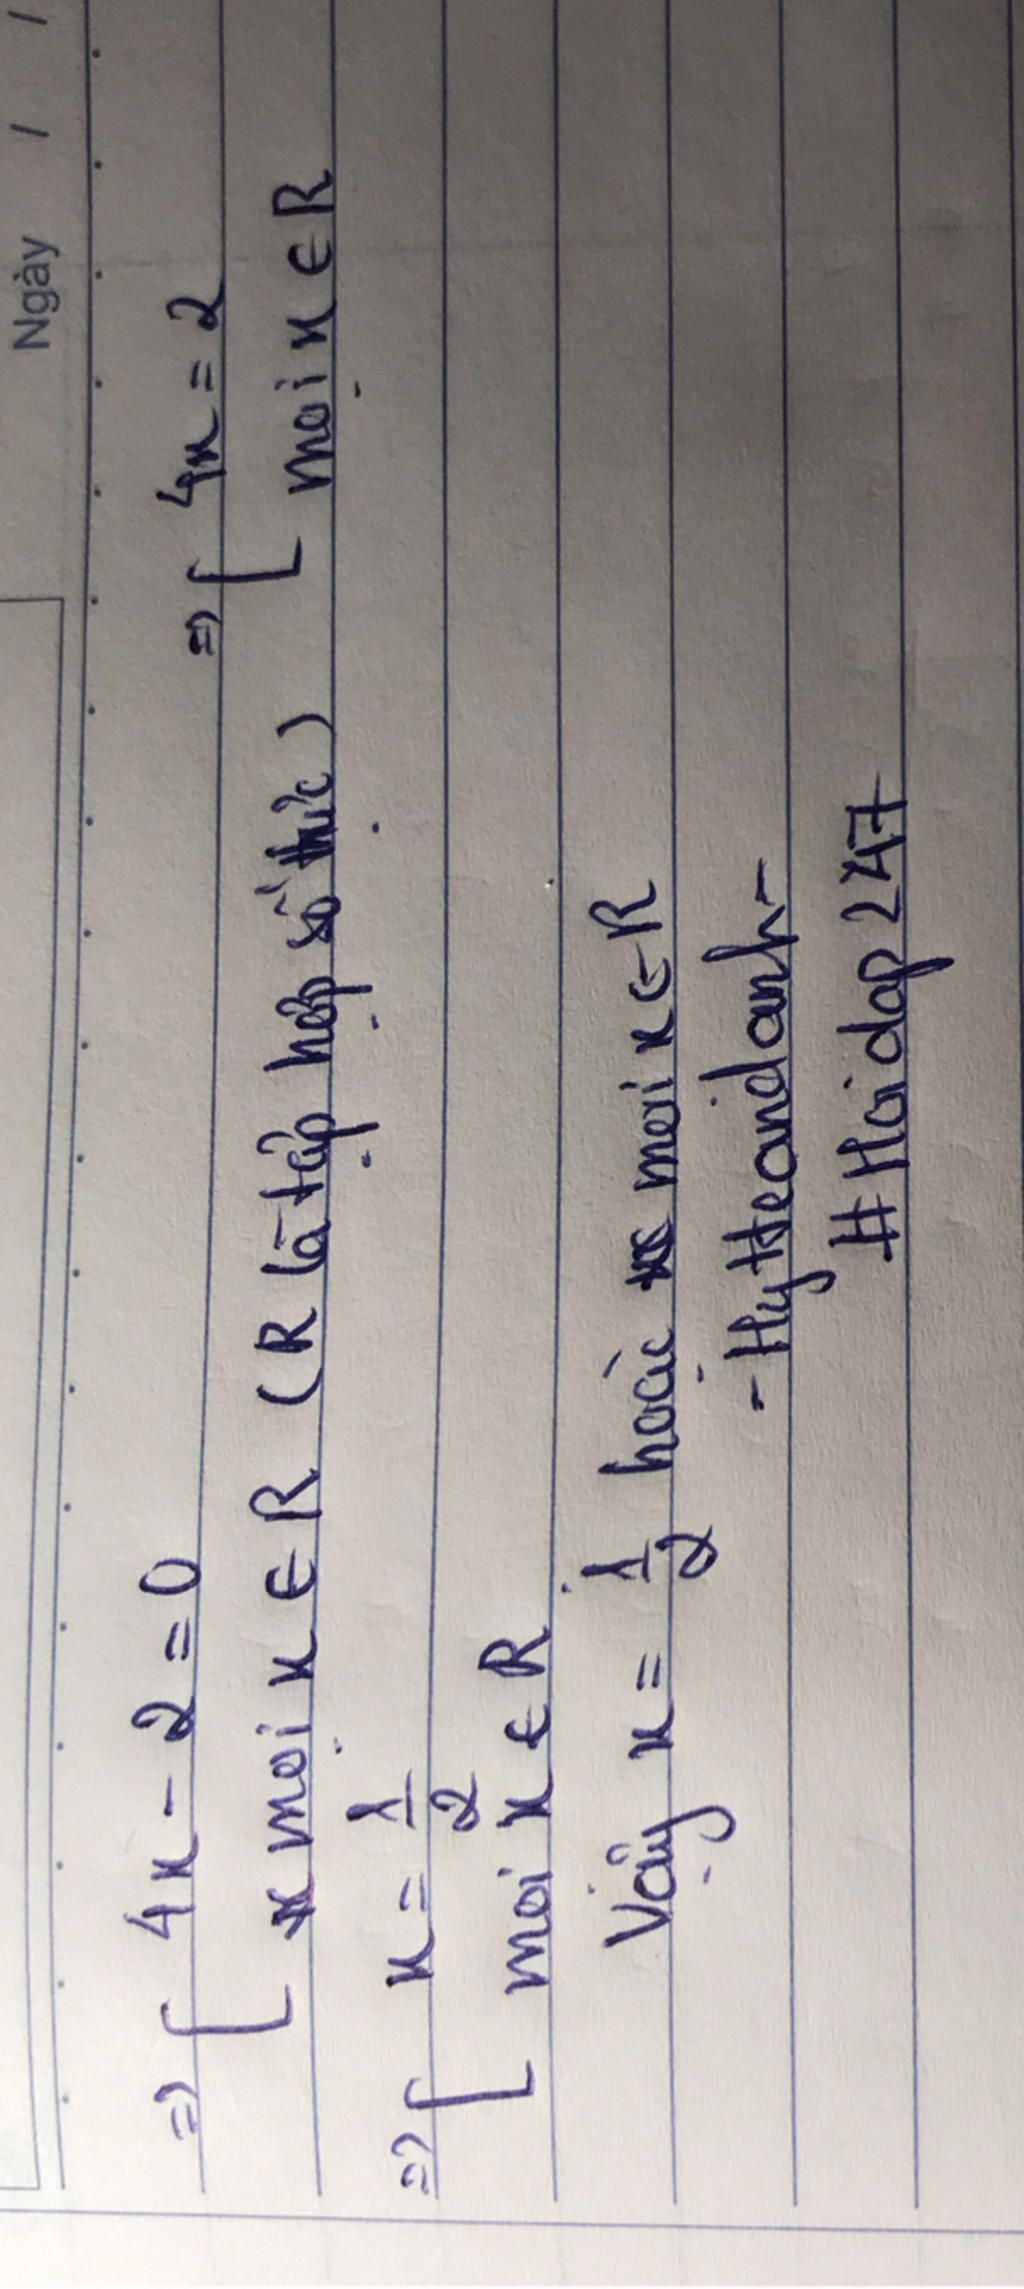 Ngày / /
=> [ 4x - 2 = 0 => [ 4x = 2
mọi x ∈ R (R là tập hợp số thực) mọi x ∈ R
=> [ x = 1/2
mọi x ∈ R
Vậy x = 1/2 hoặc mọi x ∈ R
- HyHeandanh -
#Hoidap247